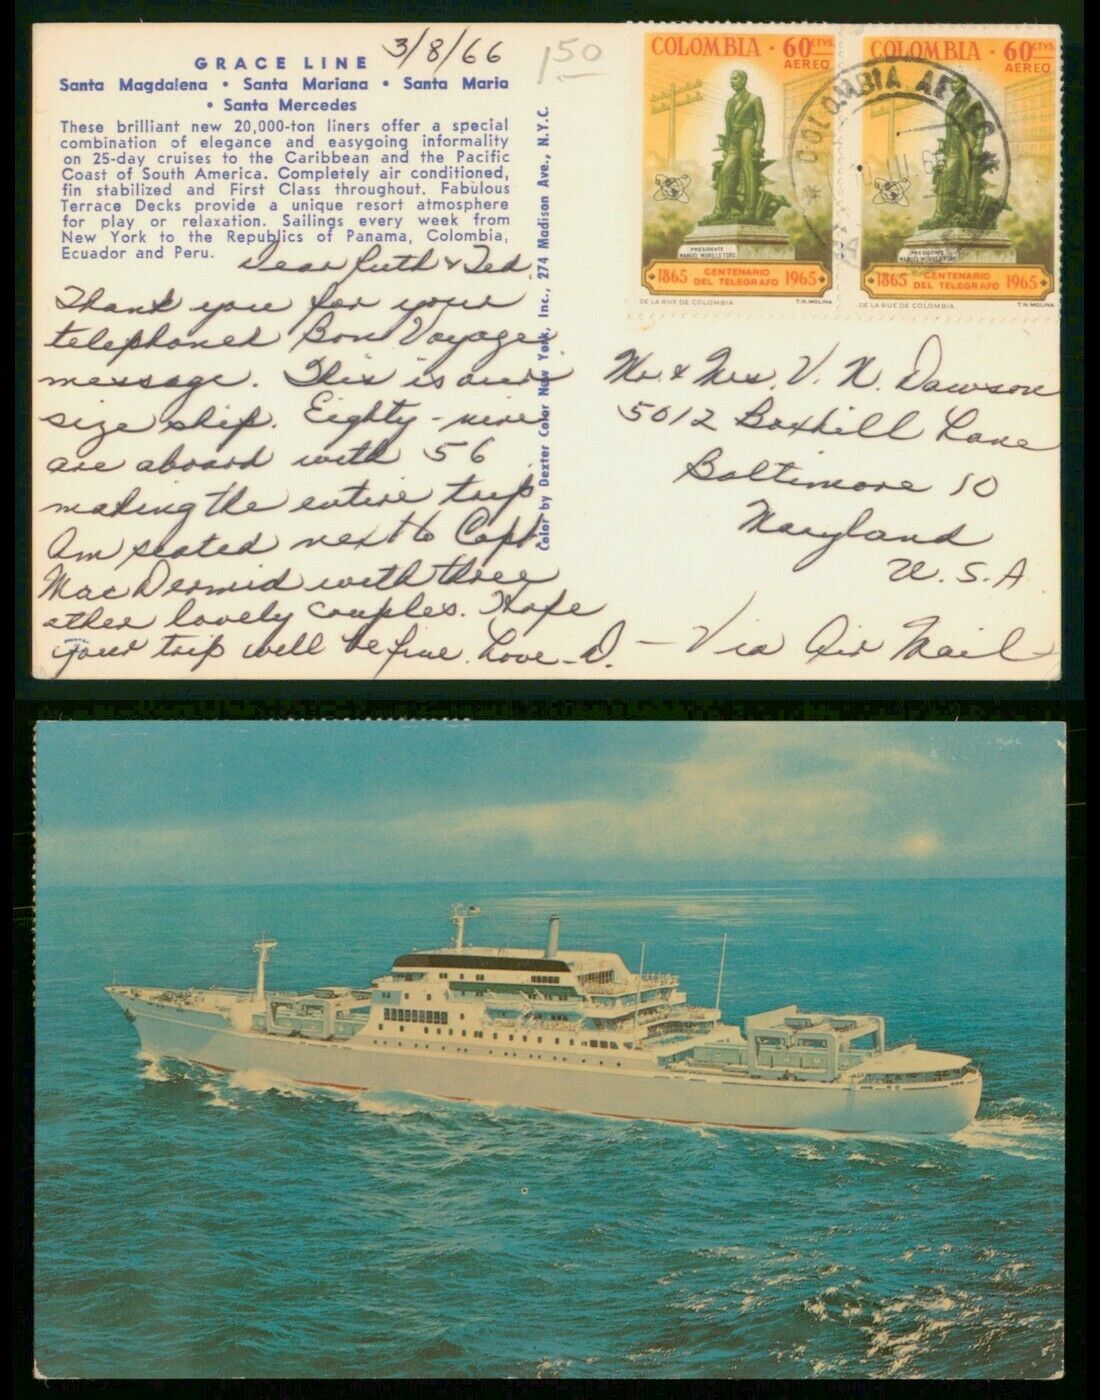 3/8/66
150
GRACE LINE
Santa Magdalena • Santa Mariana • Santa Maria
• Santa Mercedes
These brilliant new 20,000-ton liners offer a special
combination of elegance and easygoing informality
on 25-day cruises to the Caribbean and the Pacific
Coast of South America. Completely air conditioned,
fin stabilized and First Class throughout. Fabulous
Terrace Decks provide a unique resort atmosphere
for play or relaxation. Sailings every week from
New York to the Republics of Panama, Colombia,
Ecuador and Peru.
Dear Ruth & Ted,
Thank you for your
telephoned Bon Voyage
message. This is our
size ship. Eighty-nine
are aboard with 56
making the entire trip.
Am seated next to Capt.
MacDermid with three
other lovely couples. Hope
your trip will be fine. Love - D.
Color by Dexter Color New York, Inc., 274 Madison Ave., N.Y.C.
COLOMBIA • 60 CTVS.
AEREO
PRESIDENTE
MANUEL MURILLO TORO
1865 CENTENARIO DEL TELEGRAFO 1965
DE LA RUE DE COLOMBIA T.N. MOLINA
COLOMBIA • 60 CTVS.
AEREO
PRESIDENTE
MANUEL MURILLO TORO
1865 CENTENARIO DEL TELEGRAFO 1965
DE LA RUE DE COLOMBIA T.N. MOLINA
COLOMBIA
Mr. & Mrs. V. N. Dawson
5012 Boxhill Lane
Baltimore 10
Maryland
U.S.A
— Via Air Mail —